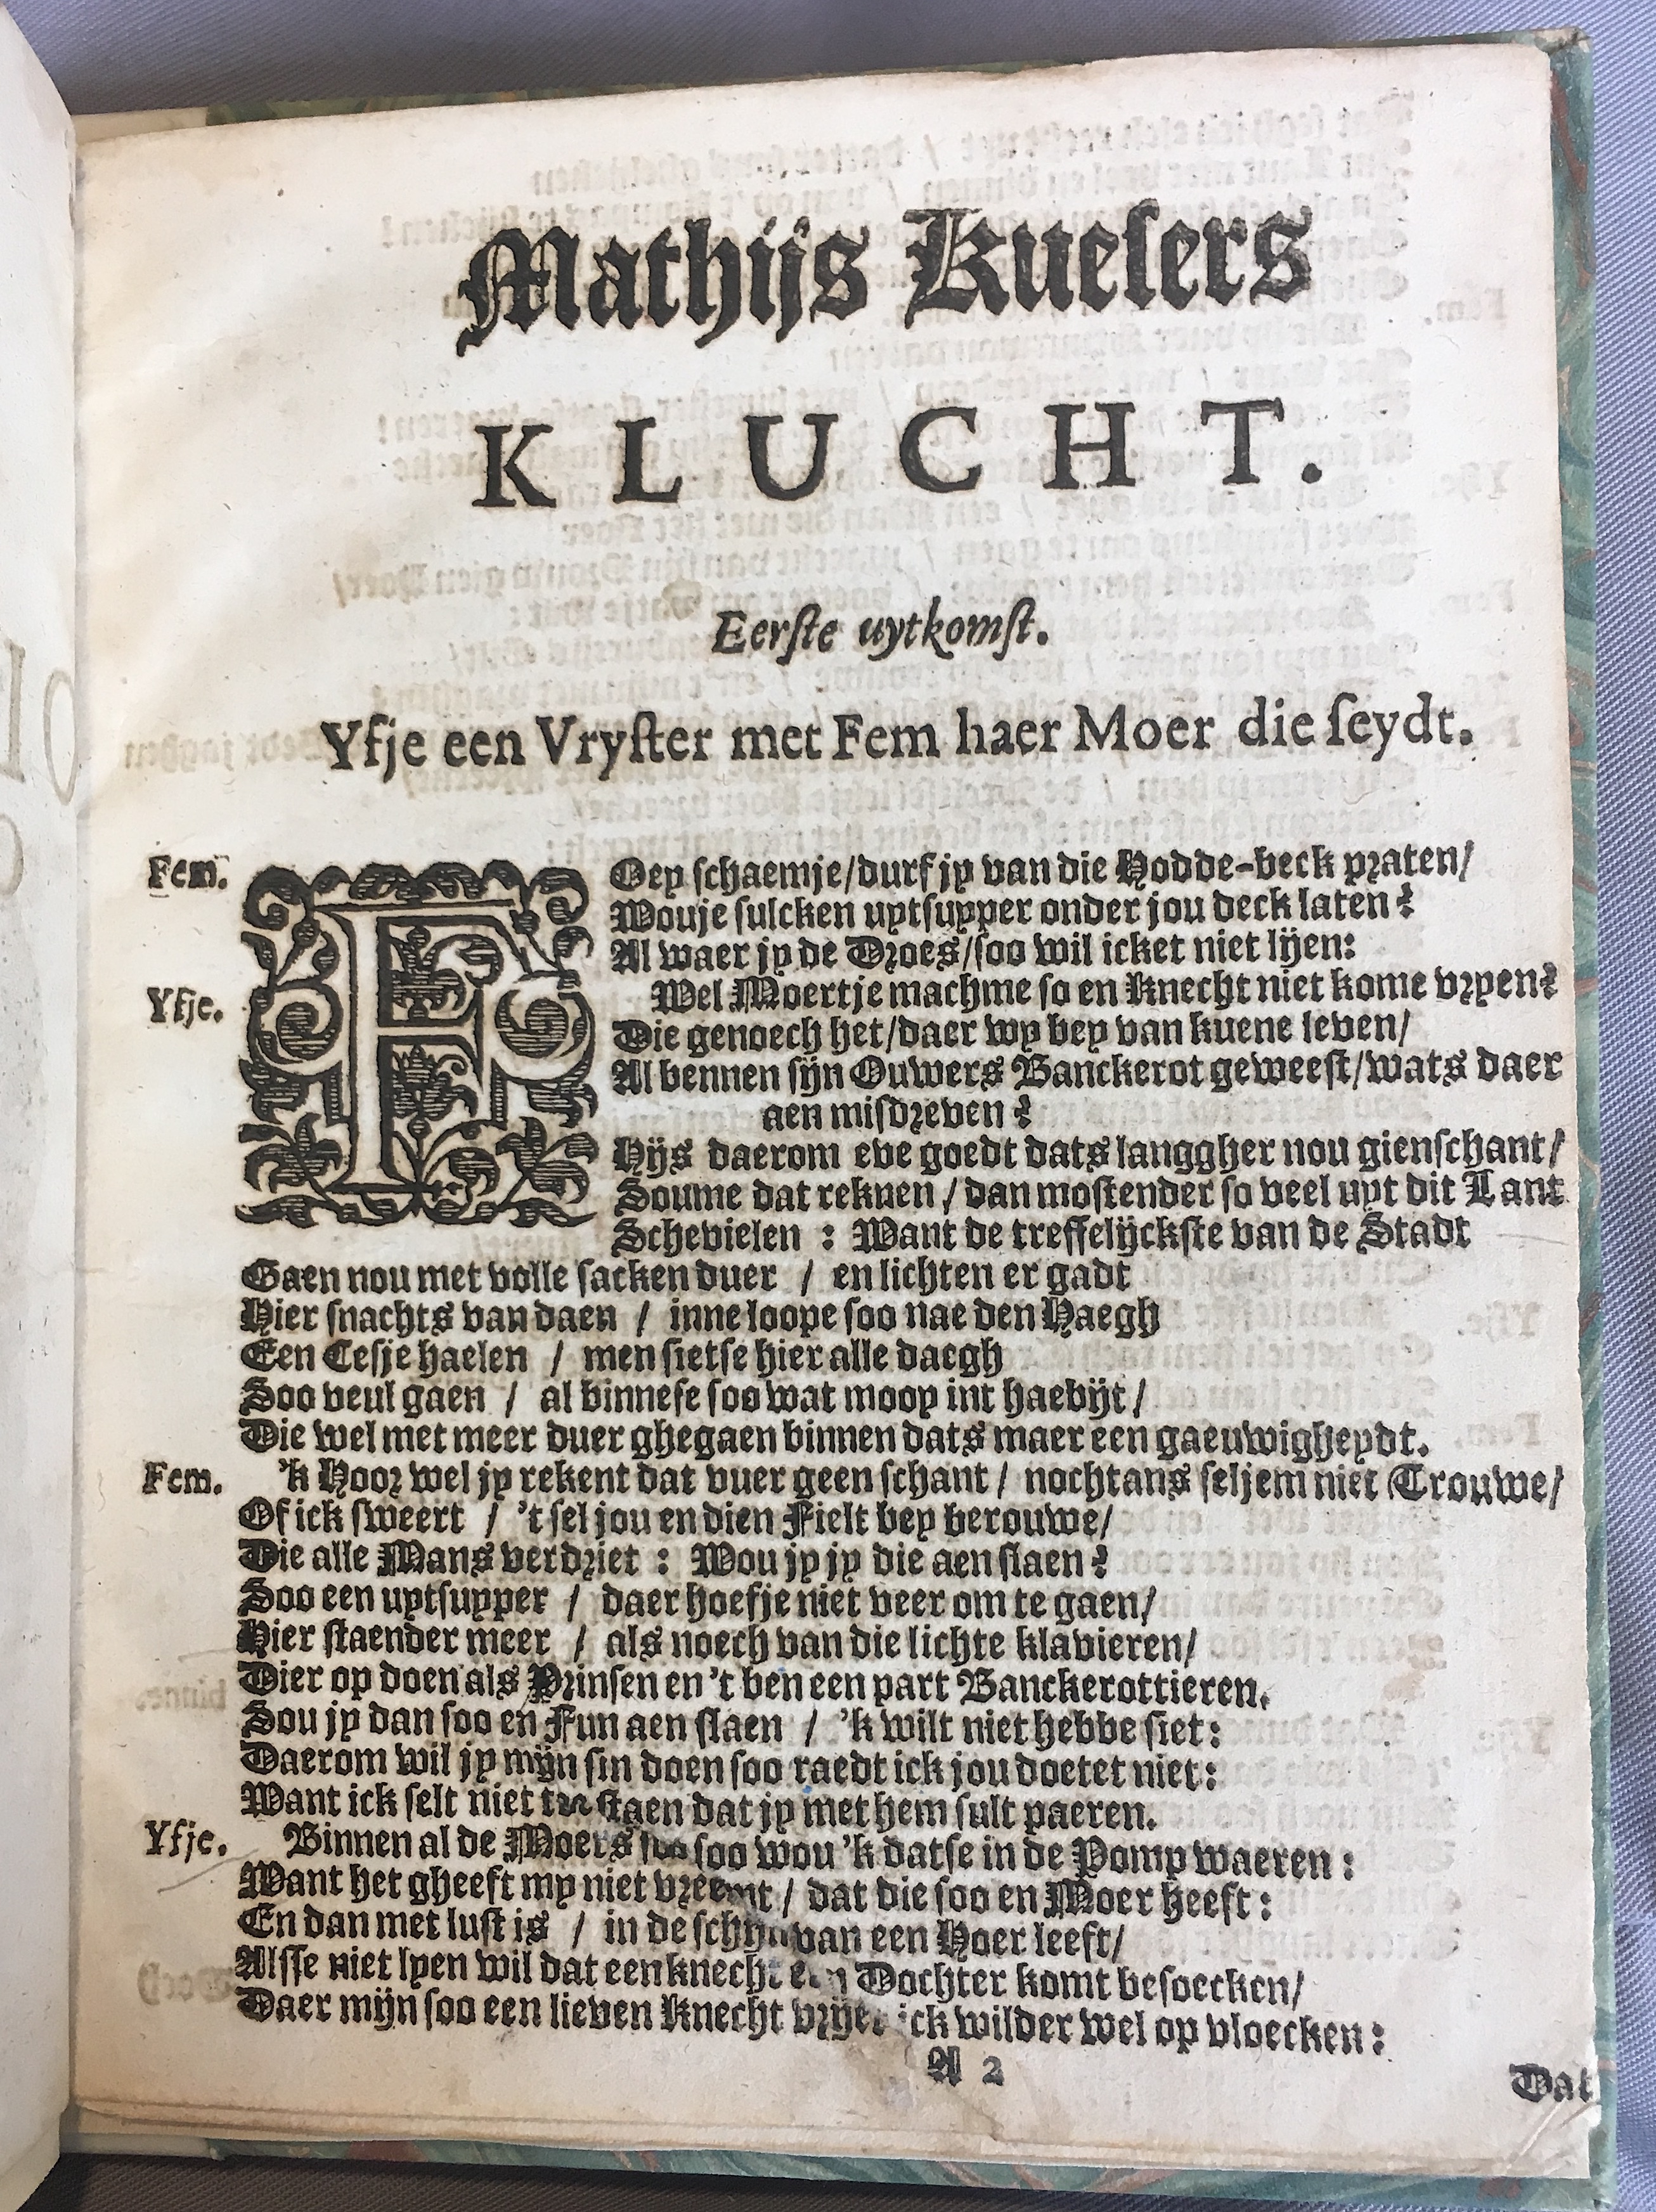 Mathijs Kuesers
KLUCHT.
Eerſte uytkomſt.
Yſje een Vryſter met Fem haer Moer die ſeydt.
Fem. FOey ſchaemje/durf jy van die Hodde-beck praten/
Wouje ſulcken uytſupper onder jou deck laten?
Al waer jy de Droes/ſoo wil icket niet lijen:
Yſje. Wel Moertje machme ſo en Knecht niet kome vryen?
Die genoech het/daer wy bey van kuene leven/
Al bennen ſijn Ouwers Banckerot geweeſt/wats daer
aen miſdreven?
Hijs daerom eve goedt dats langgher nou gienſchant/
Soume dat reknen / dan moſtender ſo veel uyt dit Lant
Schevielen : Want de treffelijckſte van de Stadt
Gaen nou met volle ſacken duer / en lichten er gadt
Hier ſnachts van daen / inne loope ſoo nae den Haegh
Een Ceſje haelen / men ſietſe hier alle daegh
Soo veul gaen / al binneſe ſoo wat mooy int haebijt/
Die wel met meer duer ghegaen binnen dats maer een gaeuwigheydt.
Fem. 'k Hoor wel jy rekent dat vuer geen ſchant / nochtans ſeljem niet Trouwe/
Of ick ſweert / 't ſel jou en dien Fielt bey berouwe/
Die alle Mans verdriet : Wou jy jy die aen ſlaen?
Soo een uytſupper / daer hoefje niet veer om te gaen/
Hier ſtaender meer / als noech van die lichte klavieren/
Dier op doen als Prinſen en 't ben een part Banckerottieren.
Sou jy dan ſoo en Fun aen ſlaen / 'k wilt niet hebbe ſiet:
Daerom wil jy mijn ſin doen ſoo raedt ick jou doetet niet:
Want ick ſelt niet ſtaen dat jy met hem ſult paeren.
Yſje. Binnen al de Moers ſoo ſoo wou 'k datſe in de Pomp waeren :
Want het gheeft my niet vreemt / dat die ſoo en Moer heeft :
En dan met luſt is / in de ſchijn van een Hoer leeft/
Alſſe niet lyen wil dat een knecht een Dochter komt beſoecken/
Daer mijn ſoo een lieven Knecht vrijet ick wilder wel op vloecken :
A 2
Dat